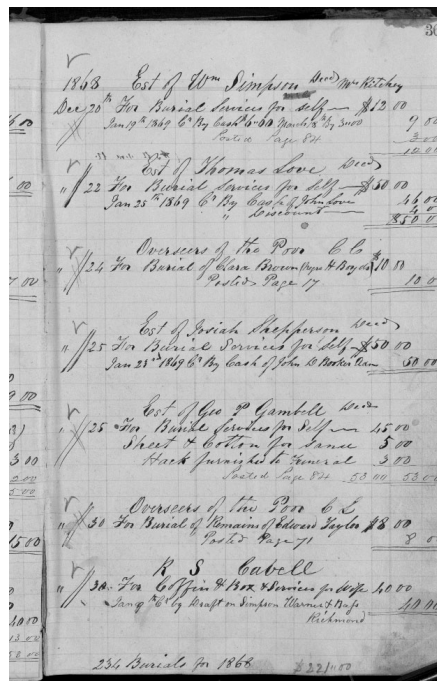 30
1868 Est of Wm Simpson Decd Mrs Ritchey
Dec 20th For Burial Services for self — $12 00
Jan 19th 1869 Cr By Cash March 8th By 3.00 9 00
Posted Page 84 3 00
12 00
Est of Thomas Love Decd
" 22 For Burial Services for Self — $50.00
Jan 25th 1869 Cr By Cash of John Love 46 00
" Discount — 4 0
$50 0
Overseers of the Poor C C
" 24 For Burial of Clara Brown $10.00
Posted Page 17 10 0
Est of Josiah Shepperson Decd
" 25 For Burial Services for self — $50 00
Jan 23rd 1869 Cr By Cash of John Booker 50 00
Est of Geo P Gambell Decd
" 25 For Burial Services for Self — 45 00
Sheet & Cotton for Same 5 00
Hack furnished to Funeral 3 00
Posted Page 84 53 00 53 00
Overseers of the Poor C L
" 30 For Burial of Remains of Edward Taylor $8 00
Posted Page 71 8 0
R S Cabell
" 30 For Coffin & Box & Services for Wife 40 00
Jan 9th Cr by Draft on Simpson Warner & 40 00
Richmond
234 Burials for 1868